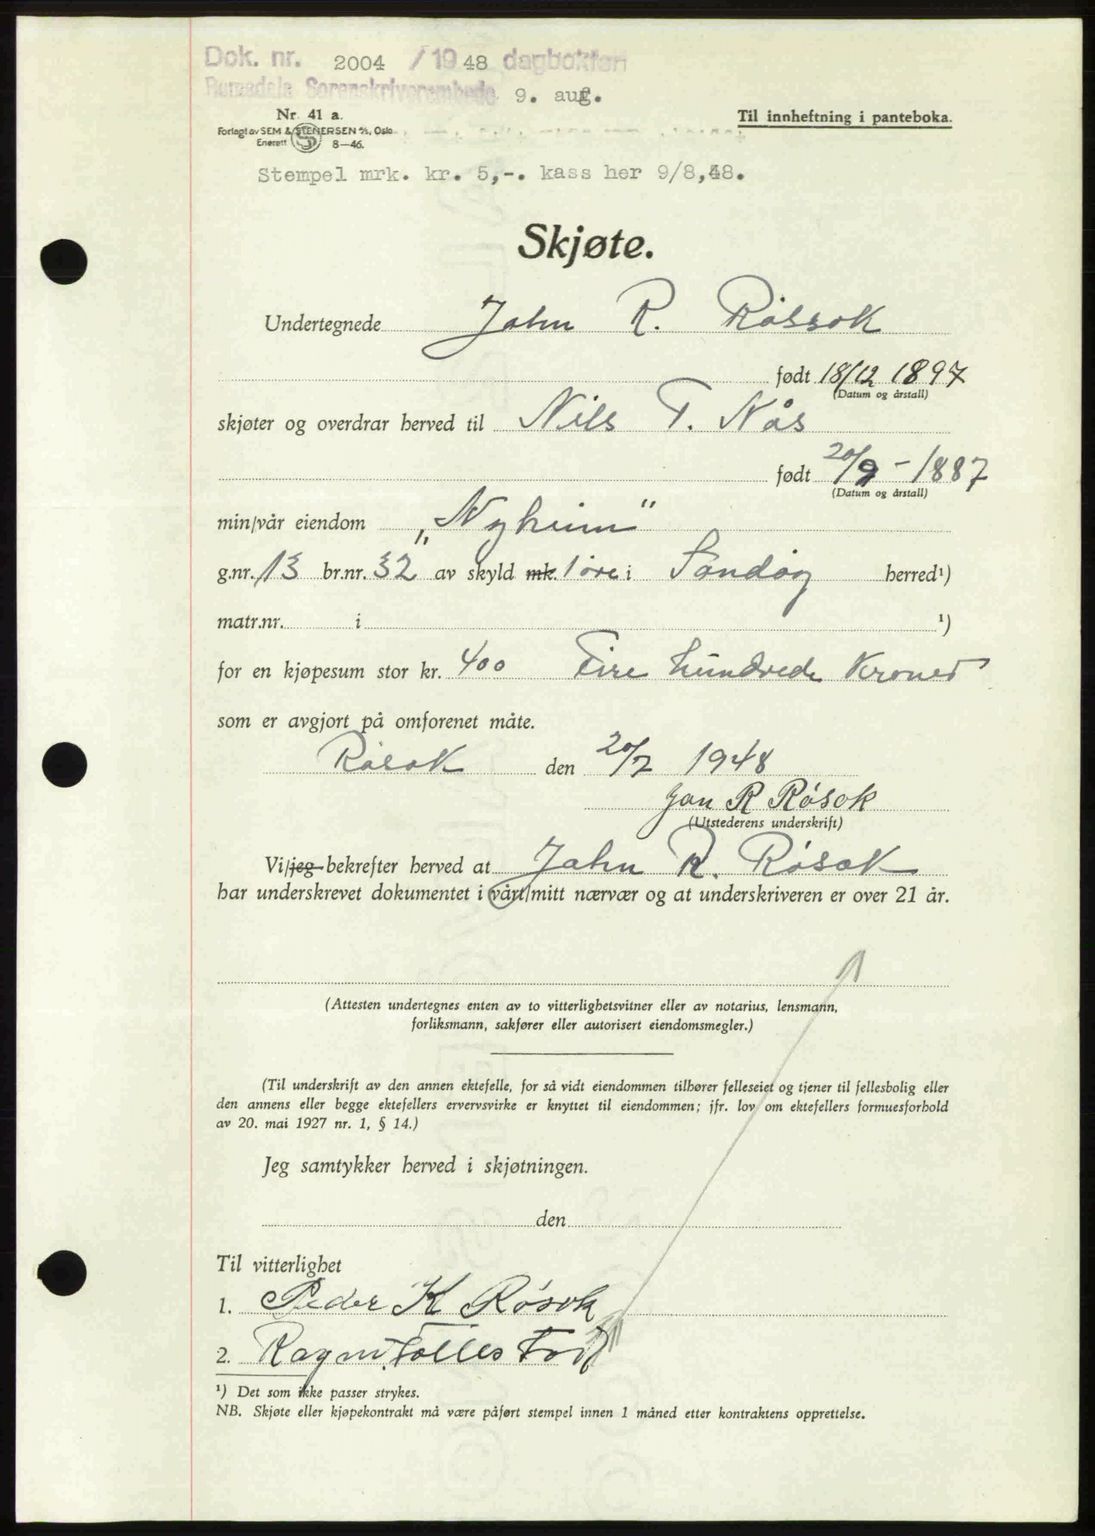 Dok. nr. 2004 / 1948 dagbokført
Romsdals Sorenskriverembede 9. aug.
Nr. 41 a.
Til innheftning i panteboka.
Forlagt av SEM & STENERSEN A/S, Oslo
Enerett 8—46.
Stempel mrk. kr. 5,-. kass her 9/8,48.
Skjøte.
Undertegnede John R. Røssok
født 18/12 1897
(Datum og årstall)
skjøter og overdrar herved til Nils T. Nås
født 20/9 - 1887
(Datum og årstall)
min/vår eiendom „Nyheim"
g.nr. 13 br.nr. 32 av skyld mk. 1 øre i Sandøy herred¹)
matr.nr. i ¹)
for en kjøpesum stor kr. 400 Fire hundrede Kroner
som er avgjort på omforenet måte.
Røsok den 20/7 1948
Jon R Røsok
(Utstederens underskrift)
Vi/jeg bekrefter herved at John R. Røsok
har underskrevet dokumentet i vårt/mitt nærvær og at underskriveren er over 21 år.
(Attesten undertegnes enten av to vitterlighetsvitner eller av notarius, lensmann,
forliksmann, sakfører eller autorisert eiendomsmegler.)
(Til underskrift av den annen ektefelle, for så vidt eiendommen tilhører felleseiet og tjener til fellesbolig eller
den annens eller begge ektefellers ervervsvirke er knyttet til eiendommen; jfr. lov om ektefellers formuesforhold
av 20. mai 1927 nr. 1, § 14.)
Jeg samtykker herved i skjøtningen.
den
Til vitterlighet
1. Peder K Røsok
2. Ragni
¹) Det som ikke passer strykes.
NB. Skjøte eller kjøpekontrakt må være påført stempel innen 1 måned etter kontraktens opprettelse.